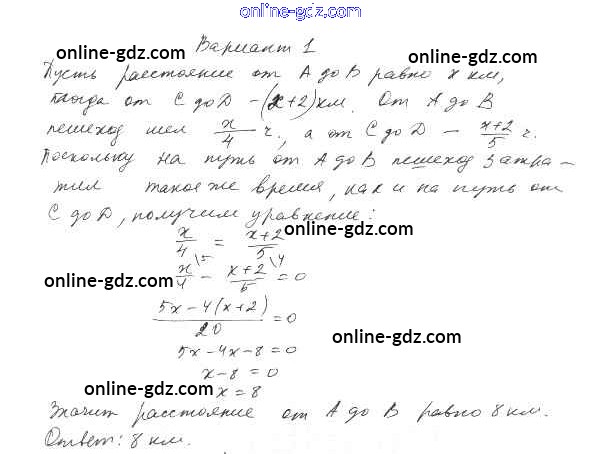 online-gdz.com
Вариант 1
online-gdz.com
online-gdz.com
Пусть расстояние от А до В равно x км,
тогда от С до D - (x+2) км. От А до В
пешеход шел x/4 ч., а от С до D - x+2/5 ч.
Поскольку на путь от А до В пешеход затра-
тил такое же время, как и на путь от
С до D, получим уравнение:
x/4 = x+2/5
online-gdz.com
x/4 \5 - x+2/5 \4 = 0
online-gdz.com
5x-4(x+2)/20 = 0
online-gdz.com
5x-4x-8=0
x-8=0
online-gdz.com
x=8
Значит расстояние от А до В равно 8 км.
Ответ: 8 км.